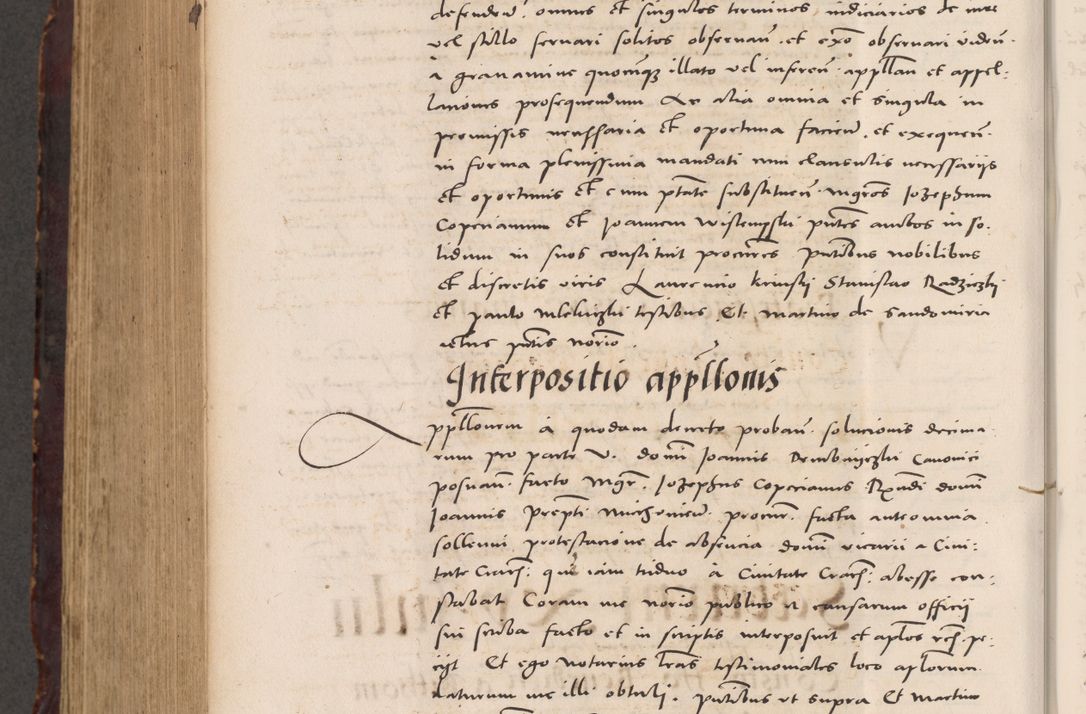 defenden. omnes et singulos terminos iudiciarios de iure
vel stillo servari solitos observan. et exo observari viden.
a gravamine quocunqz illato vel inferen. appllan et appel:
lationes prosequendum Ac alia omnia et singula in
premissis necessaria et oportuna facien. et exequen.
in forma plenissima mandati cum clausulis necessarijs
et oportunis et cum ptate substituen. mgros Jozephum
Copecianum et Joannem Wistempski pntes ambos in so.
lidum in suos constituit procures pntibus nobilibus
et discretis viris Laurencio Krinski Stanislao Radziczki
et paulo testibus. Et martino de Sandomiria
actus pntis norio.
Interpositio appllonis
Appllonem a quodam decreto proban. solucionis decima
rum pro parte V. domi Joannis Dembinyczki Canonici
posnan. facto Mgr. Jozephus Copecianus Rndi domi
Joannis prepti procur. facta anteomnia
sollenni protestacione de absencia domi vicarii a Civi:
tate Cracn. qui iam tuduo a Civitate Cracn. abesse con:
stabat Coram me norio publico et causarum officij
sui scriba facto et in scriptis interposuit et aplos pe:
cijt Et ego Notarius lras testimoniales loco aplorum
daturum me illi obtuli. pntibus ut supra Et Martino